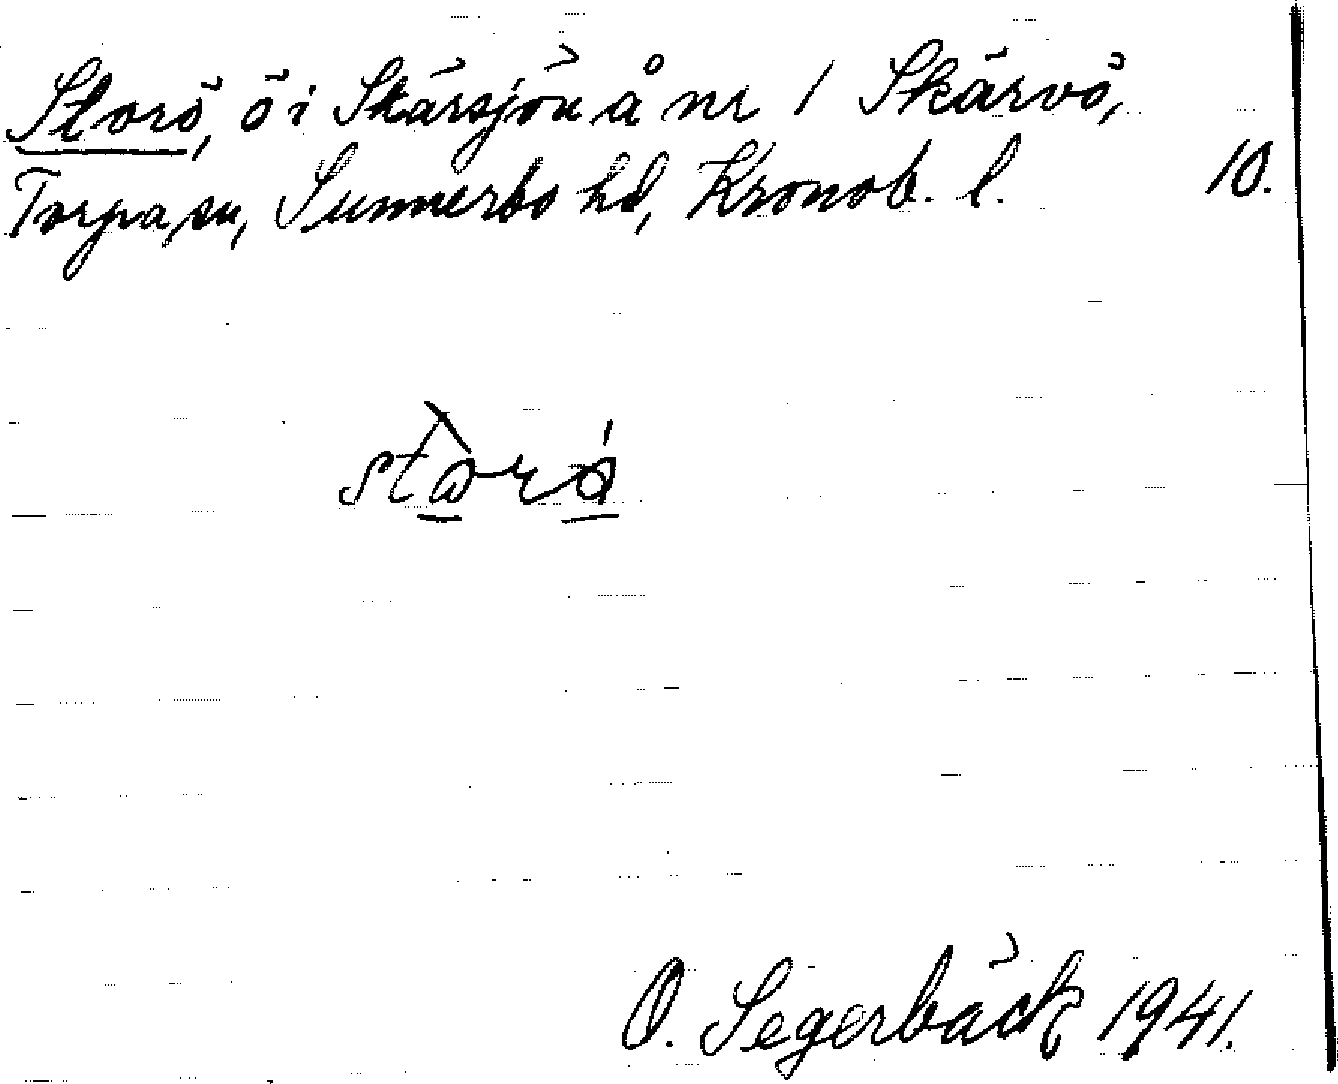 Storö, ö i Skärsjön å nr 1 Skärvö,
Torpa sn, Sunnerbo hd, Kronob. l. 10.
O. Segerbäck 1941.